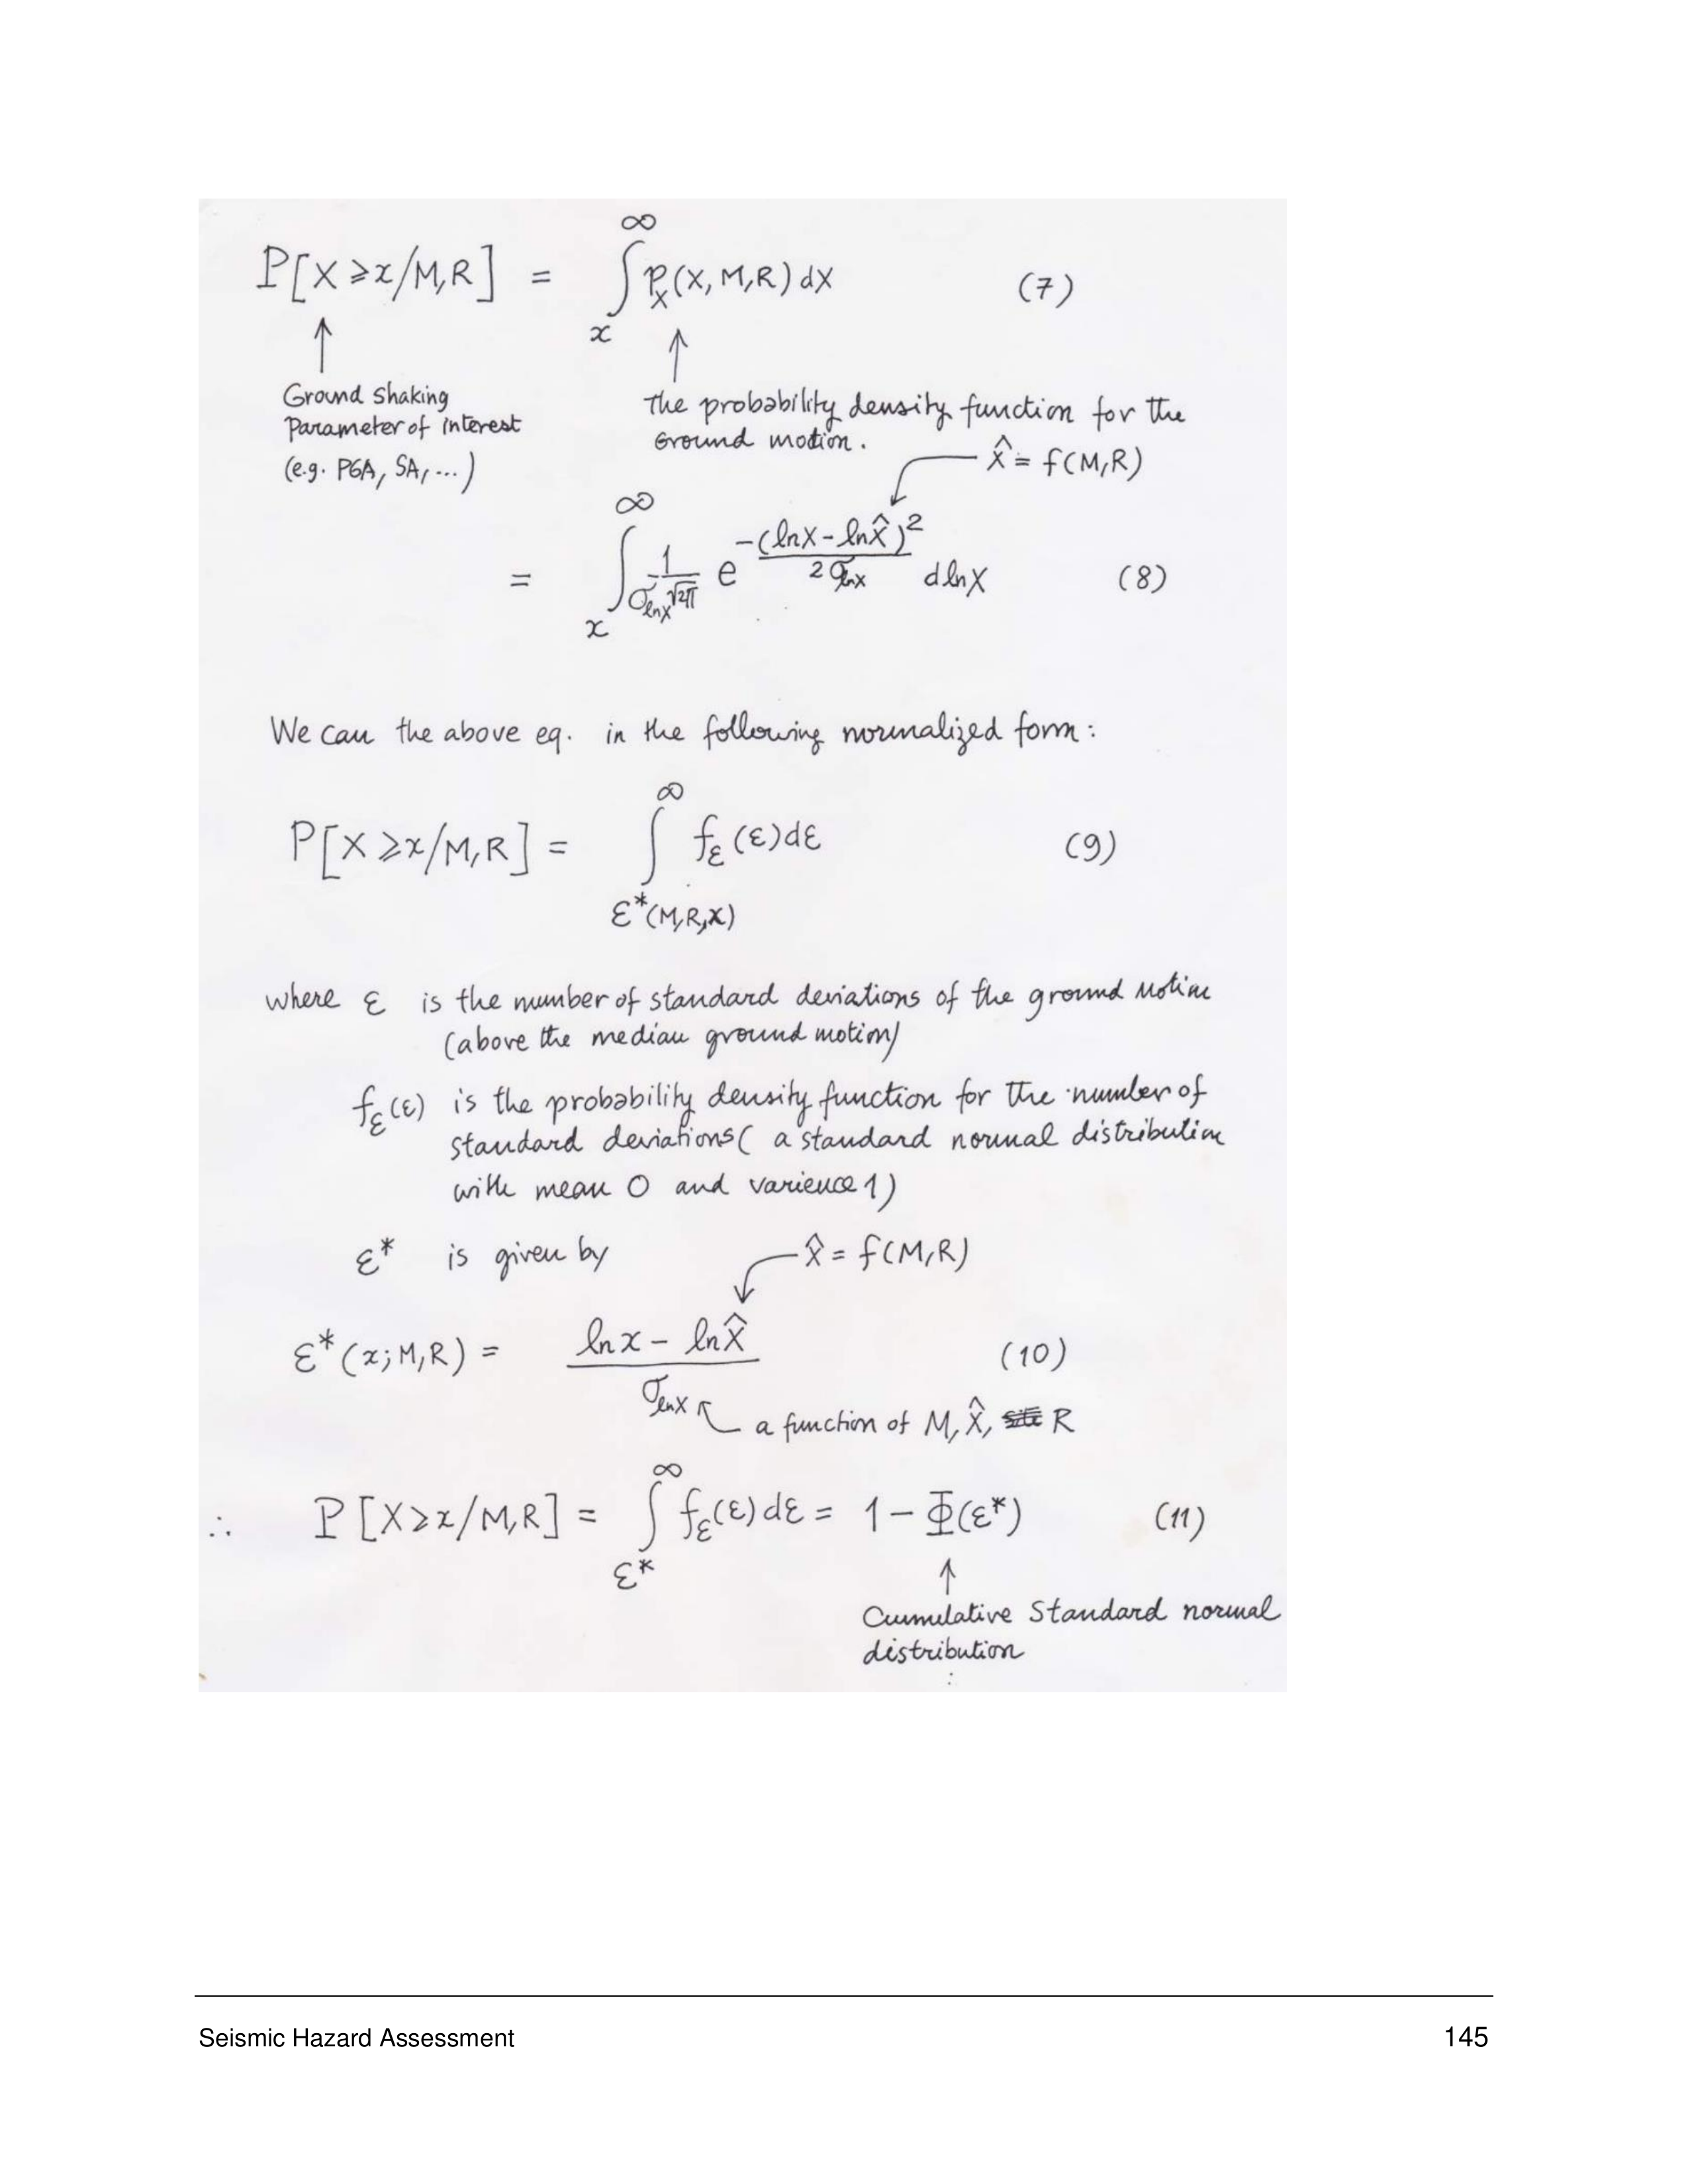 P[X ≥ x/M,R] = ∫_x^∞ p_X(X, M, R) dX (7)
↑ ↑
Ground Shaking
Parameter of interest
(e.g. PGA, SA, ...)
The probability density function for the
Ground motion.
X̂ = f(M,R)
= ∫_x^∞ 1/(σ_lnX √2π) e^(-(lnX - lnX̂)²/(2σ_lnX)) dlnX (8)
We can the above eq. in the following normalized form:
P[X ≥ x/M,R] = ∫_{ε*(M,R,x)}^∞ f_ε(ε)dε (9)
where ε is the number of standard deviations of the ground motion
(above the median ground motion)
f_ε(ε) is the probability density function for the number of
standard deviations( a standard normal distribution
with mean 0 and varience 1)
ε* is given by
X̂ = f(M,R)
ε*(x; M,R) = (lnx - lnX̂)/σ_lnX (10)
a function of M, X̂, R
∴ P[X ≥ x/M,R] = ∫_{ε*}^∞ f_ε(ε)dε = 1 - Φ(ε*) (11)
↑
Cumulative Standard normal
distribution
Seismic Hazard Assessment 145